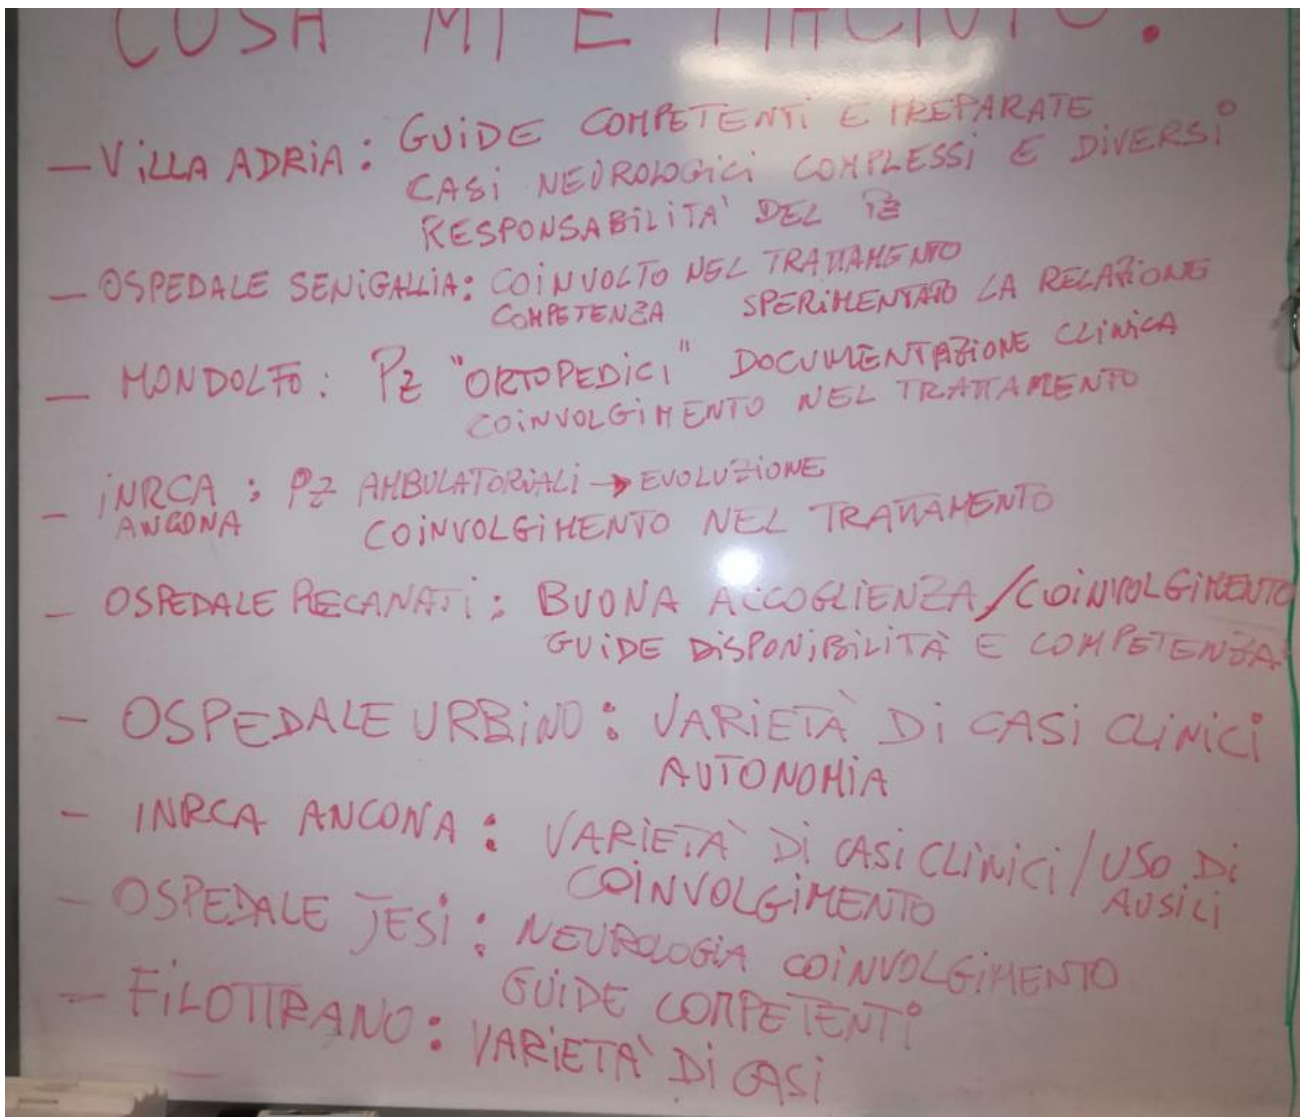 COSA MI È PIACIUTO:
- VILLA ADRIA: GUIDE COMPETENTI E PREPARATE
CASI NEUROLOGICI COMPLESSI E DIVERSI
RESPONSABILITA' DEL PZ
- OSPEDALE SENIGALLIA: COINVOLTO NEL TRATTAMENTO
COMPETENZA SPERIMENTATO LA RELAZIONE
- MONDOLFO: PZ "ORTOPEDICI" DOCUMENTAZIONE CLINICA
COINVOLGIMENTO NEL TRATTAMENTO
- INRCA: PZ AMBULATORIALI → EVOLUZIONE
ANCONA COINVOLGIMENTO NEL TRATTAMENTO
- OSPEDALE RECANATI: BUONA ACCOGLIENZA/COINVOLGIMENTO
GUIDE DISPONIBILITÀ E COMPETENZA
- OSPEDALE URBINO: VARIETÀ DI CASI CLINICI
AUTONOMIA
- INRCA ANCONA: VARIETA' DI CASI CLINICI / USO DI
COINVOLGIMENTO AUSILI
- OSPEDALE JESI: NEUROLOGIA COINVOLGIMENTO
GUIDE COMPETENTI
- FILOTTRANO: VARIETA' DI CASI